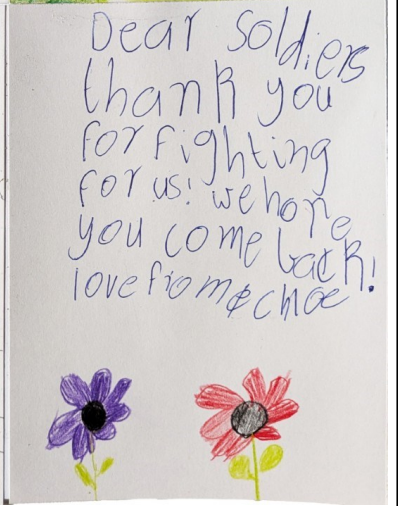 Dear Soldiers
thank you
for fighting
for us! we hope
you come back!
love from ¢ chloe